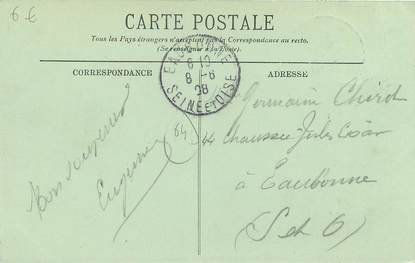 6 €
CARTE POSTALE
Tous les Pays étrangers n'acceptent pas la Correspondance au recto.
(Se renseigner à la Poste).
CORRESPONDANCE
ADRESSE
EAUBONNE
8 -6
08
SEINE ET OISE
84
Bon souvenir
Germaine
44 chaussée Jules César
à Eaubonne
(S et O)